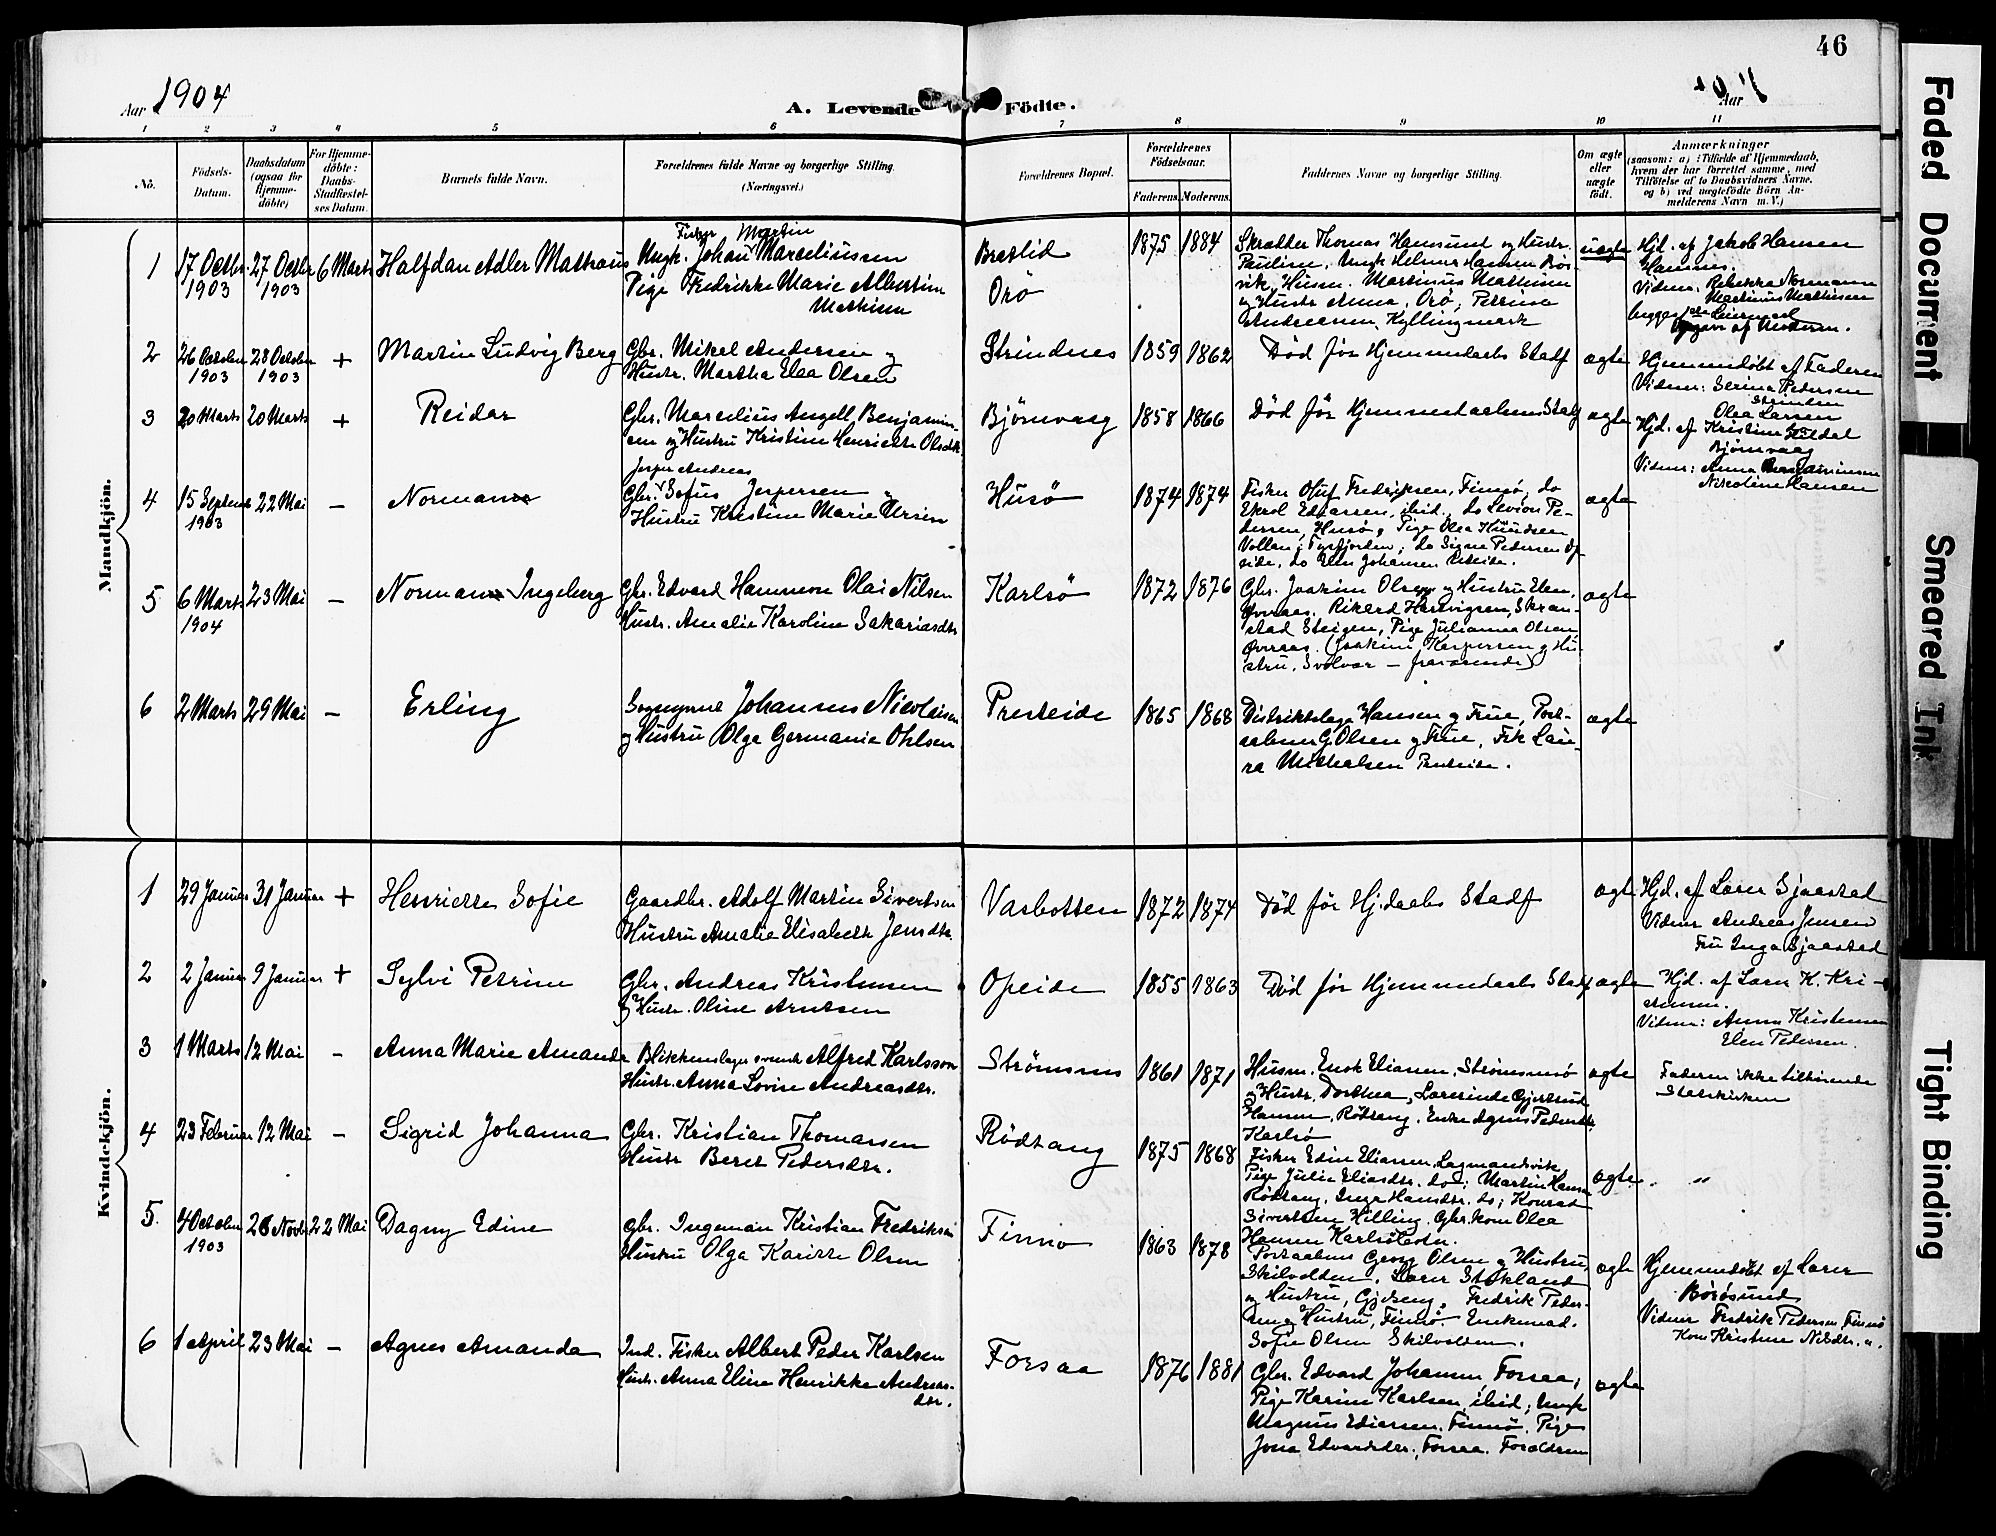 46
Aar 1904
A. Levende Fødte.
Aar 1904
1 2 3 4 5 6 7 8 9 10 11
No.
Fødsels-Datum.
Daabsdatum (ogsaa for Hjemme-døbte)
For Hjemme-døbte: Daabs-Stadfæstel-ses Datum.
Barnets fulde Navn.
Forældrenes fulde Navne og borgerlige Stilling. (Næringsvei.)
Forældrenes Bopæl.
Forældrenes Fødselsaar.
Faderens. Moderens.
Faddernes Navne og borgerlige Stilling.
Om ægte eller uægte født.
Anmærkninger
(saasom: a) i Tilfælde af Hjemmedaab,
hvem der har forrettet samme, med
Tilføielse af to Daabsvidners Navne,
og b) ved uægtefødte Børn An-
melderens Navn m. V.)
Mandkjön.
1 17 Octbr. 1903 27 Octbr 1903 6 Marts Halfdan Adler Mathæus
Fisker Martin
Ungk. Johan Marseliussen
Pige Fredrikke Marie Albertine
Mathisen
Orö
1875 1884
Skrædder Thomas Hamsund og Hustr.
Pauline, Ungk Helmer Hansen Bös-
vik, Husm. Martinus Mathisen
og Hustr Anna, Orö, Petrine
Andreassen, Kyllingmark
uægte
Hjd. af Jakob Hansen
Hamnes.
Vidner, Rebekka Normann
Martinus Mathisen
Opgivet af Moderen.
2 26 October 1903 28 October 1903 + Martin Ludvig Berg
Gbr. Mikel Andersen og
Hustr. Martha Elea Olsen
Strindnes 1859 1862 Död før Hjemmedaabs Stadf ægte
Hjemmedöbt af Faderen
Vidner: Serina Pedersen
Strinden
Olea Larsen
3 20 Marts 20 Marts + Reidar
Gbr. Marselius Angell Benjamin-
sen og Hustru Kristine Henriette Olsdtr
Björnvaag 1858 1866 Död før Hjemmedaabens Stadf ægte
Hjd. af Kristine Heldal
Björnvaag
Vidner: Anna Benjaminsen
Nikoline Hansen
4 15 Septemb 1903 22 Mai – Normann
Jesper Andreas
Gbr. Sofus Jespersen og
Hustru Kristine Marie Ursin
Husö 1874 1874
Fisker Oluf Fredriksen, Finnö, do
Ekrol Ediassen, ibid., do Levion Pe-
dersen, Husö, Pige Olea Knudsen
Vollan i Tysfjorden, do Signe Pedersen Op-
eide, do Elen Johansen Presteide.
ægte
5 6 Marts 1904 23 Mai – Normann Ingeberg
Gbr. Edvard Hammon Olai Nilsen
Hustr. Amalie Karoline Sakariasdtr
Karlsö 1872 1876
Gbr. Joakim Olsen og Hustru Elen,
Hopsaas, Rikard Hartvigsen, Skran-
stad Steigen, Pige Julianna Olsen
(Joakim Kaspersen og Hu-
stru, Svolvær – fraværende)
ægte
6 2 Marts 29 Mai – Erling
Sogneprest Johannes Nicolaisen
og Hustru Olga Germanie Ohlsen
Presteide 1865 1868
Distriktslæge Hansen og Frue, Post-
aabner G Olsen og Frue, Frk Lau-
ra Michalsen Presteide.
ægte
Kvindekjön.
1 29 Januar 31 Januar + Henriette Sofie
Gaardbr. Adolf Martin Sivertsen
Hustru Amalie Elisabeth Jensdtr
Vasbotten 1872 1874 Död før Hj.daabs Stadf ægte
Hjd. af Lærer Sjaastad
Vidner Andreas Jensen
Fru Inga Sjaastad
2 2 Januar 9 Januar + Sylvi Petrine
Gbr. Andreas Kristensen
og Hustr. Oline Arntsen
Opeide 1855 1863 Död før Hjemmedaabs Stadf ægte
Hjd. af Lærer K. Kri-
stensen.
Vidner: Anna Kristensen
Elen Pedersen.
3 1 Marts 12 Mai – Anna Marie Amanda
Blikkenslagersvend Alfred Karlsson
Hustr. Anna Lovise Andreasdtr.
Strömsnes 1861 1871
Husm. Enok Eliassen, Strömsnesö
og Hustr, Dorthea, Lærerinde Gjertrud
Hansen, Rödtang, Enke Agnes Pedersdtr,
Karlsö
ægte
Faderen ikke tilhörende
Statskirken
4 23 Februar 12 Mai – Sigrid Johanna
Gbr. Kristian Thomassen
Hustr Beret Pedersdtr.
Rödtang 1875 1868
Fisker Edin Eliassen Lagmandsvik,
Pige Julie Eliasdtr. do; Martin Hansen
Rödtang, Inga Hansdtr. do; Konrad
Sivertsen Hilling, Gbr.kone Olea
Hansen Karlsö
ægte „
5. 4 October 1903 26 Novb 22 Mai Dagny Edine
Gbr. Ingeman Kristian Fredriksen
Hustru Olga Karitte Olsen
Finnö 1863 1878
Postaabner Georg Olsen og Hustru,
Skilvolden, Lærer Stokland
og Hustru, Gjelseng, Fredrik Peder-
sen og Hustru, Finnö Enkemad.
Sofie Olsen Skilvolden.
ægte
Hjemmedöbt af Lærer
Börösund
Vidner Fredrik Pedersen, Finnö
Kone Kristine Nilsdtr. „.
6 1 April 23 Mai – Agnes Amanda
Ind. Fisker Albert Peder Karlsen
Hustr. Anna Eline Henrikke Andreas-
dtr.
Forsaa 1876 1881
Gbr. Edvard Johansen, Forsaa,
Pige Karine Karlsen, ibid; Ungk
Magnus Ediassen, Finnö, Pige
Jona Edvardsdtr, Forsaa. Forældrene
ægte
Faded Document
Smeared Ink
Tight Binding